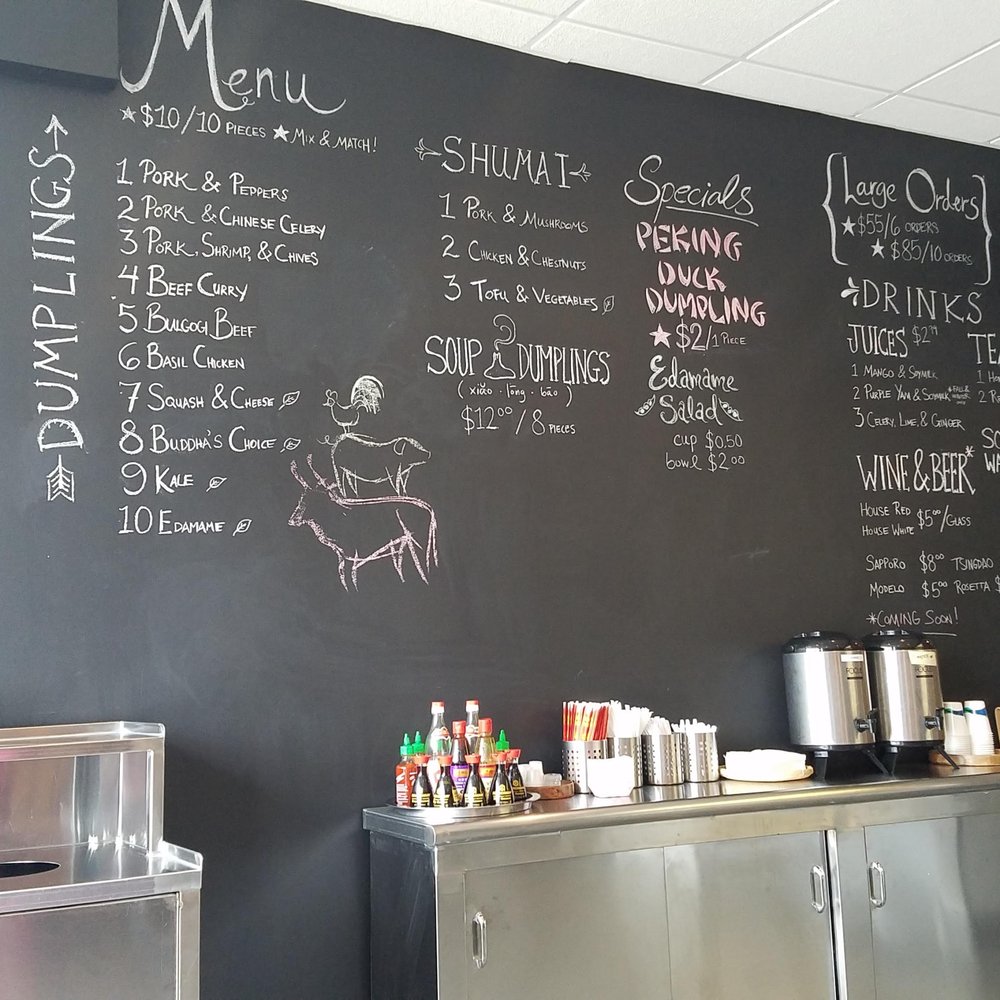 Menu
★ $10/10 PIECES ★ MIX & MATCH!
DUMPLINGS
1 PORK & PEPPERS
2 PORK & CHINESE CELERY
3 PORK, SHRIMP, & CHINES
4 BEEF CURRY
5 BULGOGI BEEF
6 BASIL CHICKEN
7 SQUASH & CHEESE
8 BUDDHA'S CHOICE
9 KALE
10 EDAMAME
SHUMAI
1 PORK & MUSHROOMS
2 CHICKEN & CHESTNUTS
3 TOFU & VEGETABLES
SOUP DUMPLINGS
(xiǎo · lóng · bāo)
$12.00/8 PIECES
Specials
PEKING
DUCK
DUMPLING
★ $2/1 PIECE
Edamame
Salad
cup $0.50
bowl $2.00
{Large Orders}
★ $55/6 ORDERS
★ $85/10 ORDERS
DRINKS
JUICES
1 MANGO & SOYMILK
2 PURPLE YAM & SOYMILK
3 CELERY, LIME, & GINGER
WINE & BEER*
HOUSE RED
HOUSE WHITE $5.00/GLASS
SAPPORO $8.00 TSINGDAO
MODELO $5.00 ROSETTA $
*COMING SOON!